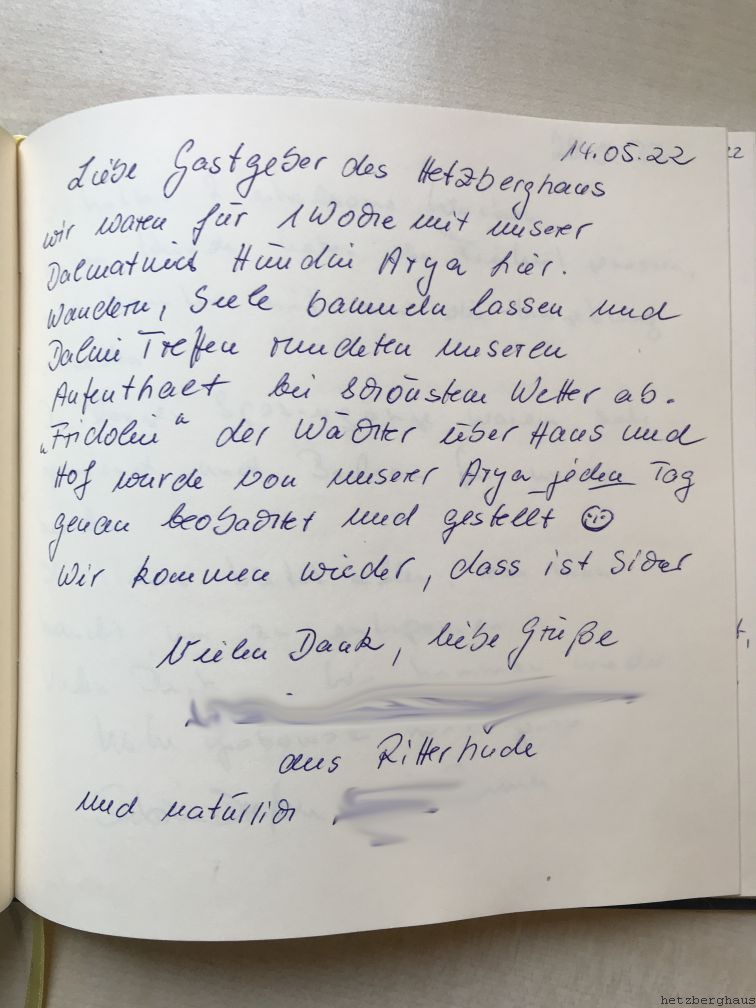 14.05.22
Liebe Gastgeber des Hetzberghaus
wir waren für 1 Woche mit unserer
Dalmatiner Hündin Arya hier.
Wandern, Seele baumeln lassen und
Dalmi Treffen rundeten unseren
Aufenthalt bei schönstem Wetter ab.
„Fridolin“ der Wächter über Haus und
Hof wurde von unserer Arya jeden Tag
genau beobachtet und gestellt ☺
Wir kommen wieder, dass ist sicher
Vielen Dank, liebe Grüße
aus Ritterhude
und natürlich
hetzberghaus